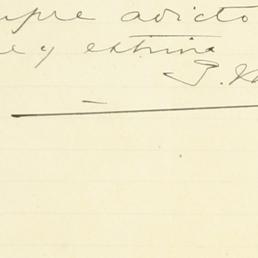 mpre adicto
e y estima